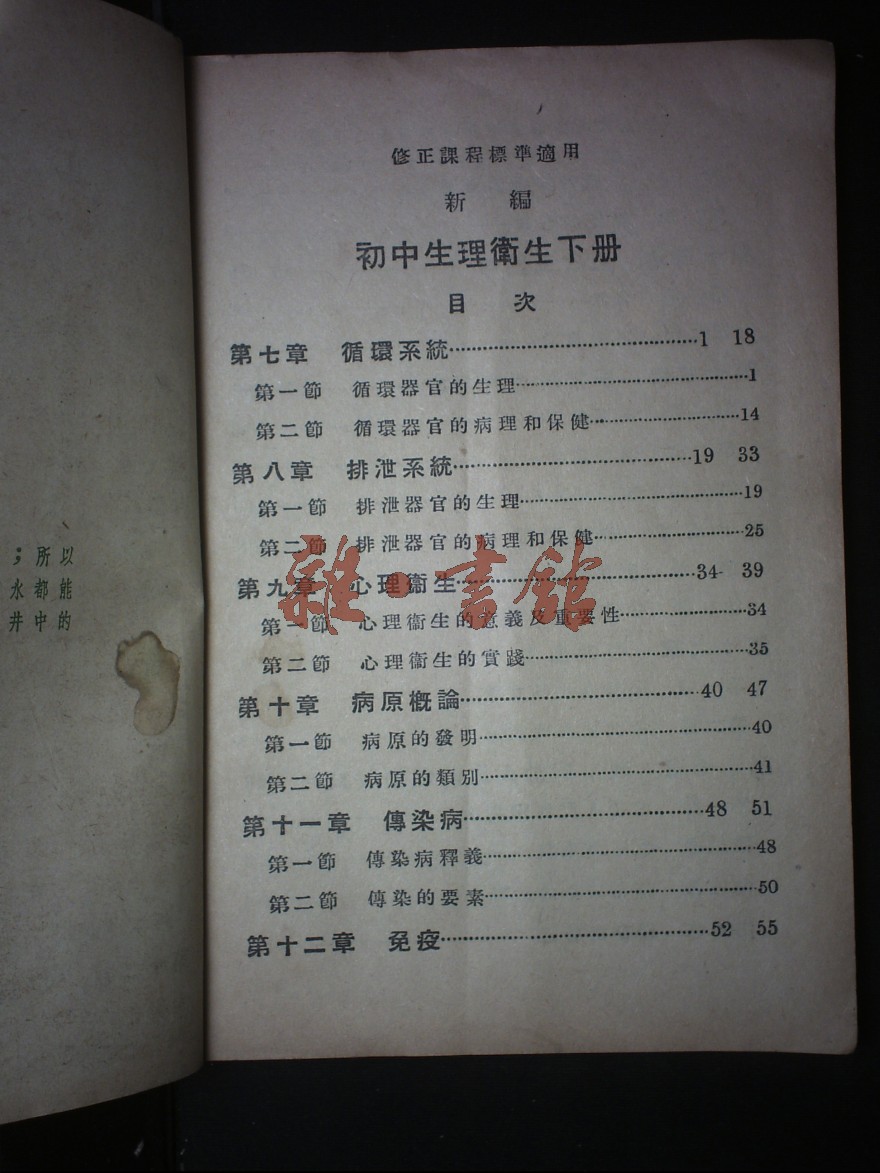 修正課程標準適用
新編
初中生理衛生下册
目次
第七章 循環系統……1 18
第一節 循環器官的生理……1
第二節 循環器官的病理和保健……14
第八章 排泄系統……19 33
第一節 排泄器官的生理……19
第二節 排泄器官的病理和保健……25
第九章 心理衞生……34- 39
第一節 心理衞生的意義及重要性……34
第二節 心理衞生的實踐……35
第十章 病原概論……40 47
第一節 病原的發明……40
第二節 病原的類別……41
第十一章 傳染病……48 51
第一節 傳染病釋義……48
第二節 傳染的要素……50
第十二章 免疫……52 55
雜·書館
以所；
能都水
的中井